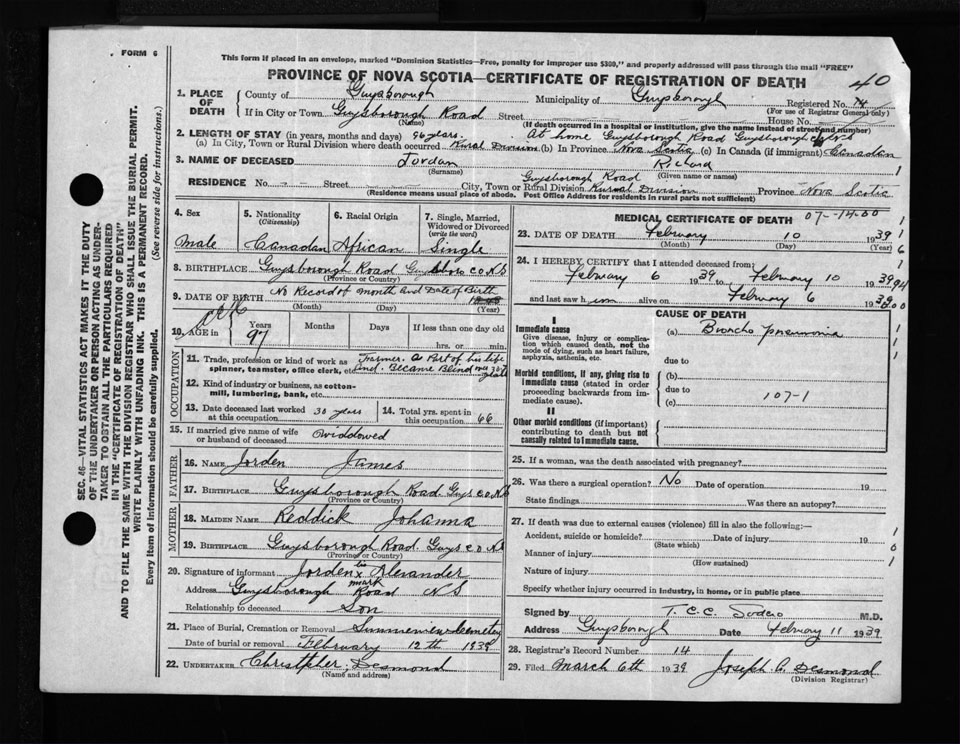 FORM 6
This form if placed in an envelope, marked "Dominion Statistics—Free, penalty for improper use $300," and properly addressed will pass through the mail "FREE"
PROVINCE OF NOVA SCOTIA—CERTIFICATE OF REGISTRATION OF DEATH
40
1. PLACE OF DEATH
County of Guysborough Municipality of Guysborough Registered No. 14
(For use of Registrar General only)
If in City or Town Guysborough Road Street House No.
(Name) (If death occurred in a hospital or institution, give the name instead of street and number)
2. LENGTH OF STAY (in years, months and days) 96 years. At home Guysborough Road Guysborough
(a) In City, Town or Rural Division where death occurred Rural Division (b) In Province Nova Scotia (c) In Canada (if immigrant) Canadian
3. NAME OF DECEASED Jordan Richard
(Surname) (Given name or names)
RESIDENCE No. Street City, Town or Rural Division Guysborough Road Rural Division Province Nova Scotia
(Residence means usual place of abode. Post Office Address for residents in rural parts not sufficient)
4. Sex Male
5. Nationality (Citizenship) Canadian
6. Racial Origin African
7. Single, Married, Widowed or Divorced (write the word) Single
8. BIRTHPLACE Guysborough Road Guysboro Co N.S
(Province or Country)
9. DATE OF BIRTH No Record of month and Date of Birth
(Month) (Day) (Year)
10. AGE in Years 97 Months Days If less than one day old
hrs. or min.
OCCUPATION
11. Trade, profession or kind of work as spinner, teamster, office clerk, etc. Farmer. a Part of his life and. Became Blind
12. Kind of industry or business, as cotton-mill, lumbering, bank, etc.
13. Date deceased last worked at this occupation 30 years
14. Total yrs. spent in this occupation 66
15. If married give name of wife or husband of deceased Widdowed
FATHER
16. NAME Jorden James
17. BIRTHPLACE Guysborough Road. Guys Co N.S
(Province or Country)
MOTHER
18. MAIDEN NAME Reddick Johanna
19. BIRTHPLACE Guysborough Road. Guys Co N.S
(Province or Country)
20. Signature of informant Jorden his x mark Alexander
Address Guysborough Road N S
Relationship to deceased Son
21. Place of Burial, Cremation or Removal Cemetery
Date of burial or removal February 12th 1939
22. UNDERTAKER Christpher. Desmond
(Name and address)
MEDICAL CERTIFICATE OF DEATH 07-14.00
23. DATE OF DEATH February 10 1939
(Month) (Day) (Year)
24. I HEREBY CERTIFY that I attended deceased from:
February 6 1939 to February 10 1939
and last saw him alive on February 6 1939
CAUSE OF DEATH
I
Immediate cause
Give disease, injury or complication which caused death, not the mode of dying, such as heart failure, asphyxia, asthenia, etc.
(a) Broncho pneumonia
due to
Morbid conditions, if any, giving rise to immediate cause (stated in order proceeding backwards from immediate cause).
(b)
due to
(c) 107-1
II
Other morbid conditions (if important) contributing to death but not causally related to immediate cause.
25. If a woman, was the death associated with pregnancy?
26. Was there a surgical operation? No Date of operation 19
State findings Was there an autopsy?
27. If death was due to external causes (violence) fill in also the following:—
Accident, suicide or homicide? Date of injury 19
(State which)
Manner of injury
(How sustained)
Nature of injury
Specify whether injury occurred in industry, in home, or in public place
Signed by T. C. C. Sodero M.D.
Address Guysborough Date February 11 1939
28. Registrar's Record Number 14
29. Filed March 6th 1939 Joseph C. Desmond
(Division Registrar)
SEC. 46—VITAL STATISTICS ACT MAKES IT THE DUTY
OF THE UNDERTAKER OR PERSON ACTING AS UNDER-
TAKER TO OBTAIN ALL THE PARTICULARS REQUIRED
IN THE "CERTIFICATE OF REGISTRATION OF DEATH"
AND TO FILE THE SAME WITH THE DIVISION REGISTRAR WHO SHALL ISSUE THE BURIAL PERMIT.
WRITE PLAINLY WITH UNFADING INK. THIS IS A PERMANENT RECORD.
Every item of information should be carefully supplied. (See reverse side for instructions.)